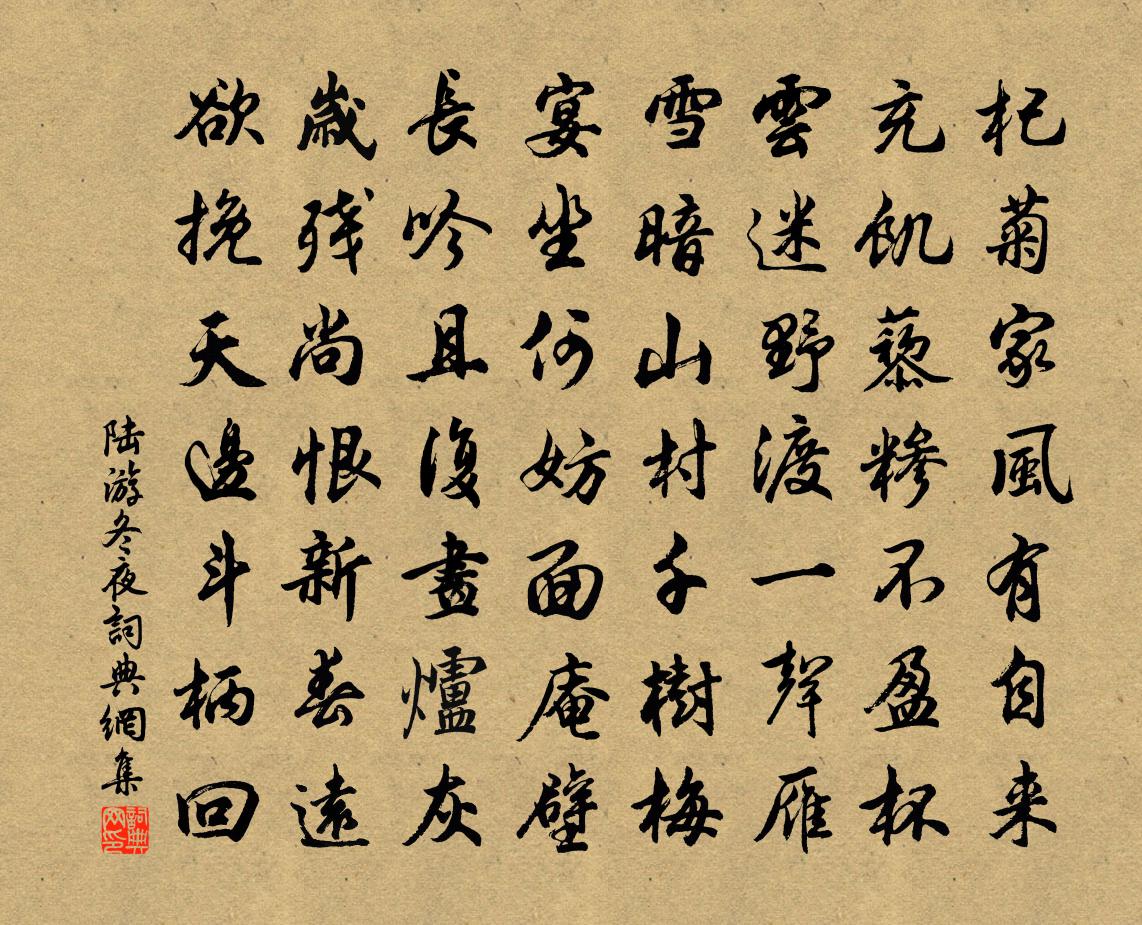 杞菊家風有自来
充飢藜糝不盈杯
雲迷野渡一聲雁
雪暗山村千樹梅
宴坐何妨面庵壁
長吟且復畫爐灰
歲残尚恨新春遠
欲挽天邊斗柄回
陆游冬夜詞典網集
詞典网印